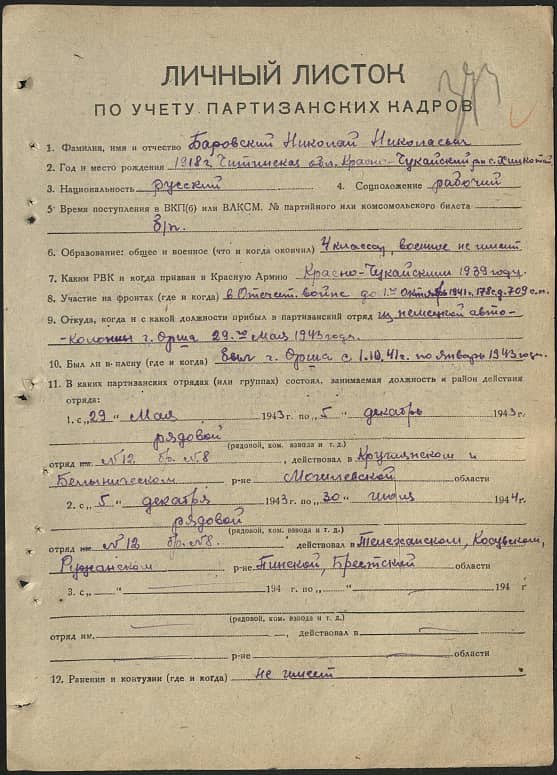 ЛИЧНЫЙ ЛИСТОК
ПО УЧЕТУ ПАРТИЗАНСКИХ КАДРОВ
1. Фамилия, имя и отчество Баровский Николай Николаевич
2. Год и место рождения 1918 г. Читинская обл. Красно-Чукайский р-н с.
3. Национальность русский 4. Соцположение рабочий
5 Время поступления в ВКП(б) или ВЛКСМ. № партийного или комсомольского билета
б/п.
6. Образование: общее и военное (что и когда окончил) 4 класса, военное не имеет
7. Каким РВК и когда призван в Красную Армию Красно-Чукайским 1939 году.
8. Участие на фронтах (где и когда) в Отечест. войне до 1го Октября 1941 г. 178 с.д. 709 с.п.
9. Откуда, когда и с какой должности прибыл в партизанский отряд из немецкой авто-
-колонны г. Орша 29го Мая 1943 года.
10. Был ли в плену (где и когда) был г. Орша с 1.10.41 г. по январь 1943 год.
11. В каких партизанских отрядах (или группах) состоял, занимаемая должность и район действия
отряда:
1. с „29“ Мая 1943 г. по „5“ декабрь 1943 г.
рядовой
(рядовой, ком. взвода и т. д.)
отряд им. №12 бр. №8, действовал в Круглянском и
Белыническом р-не Могилевской области
2. с „5“ декабря 1943 г. по „30“ июля 1944 г.
рядовой
(рядовой, ком. взвода и т. д.)
отряд им. №12 бр. №8. действовал в Телеханском, Косувском,
Ружанском р-не Пинской, Брестский области
3. с „ “ 194 г. по „ “ 194 г
(рядовой, ком. взвода и т. д.)
отряд им. , действовал в
р-не области
12. Ранения и контузии (где и когда) не имеет